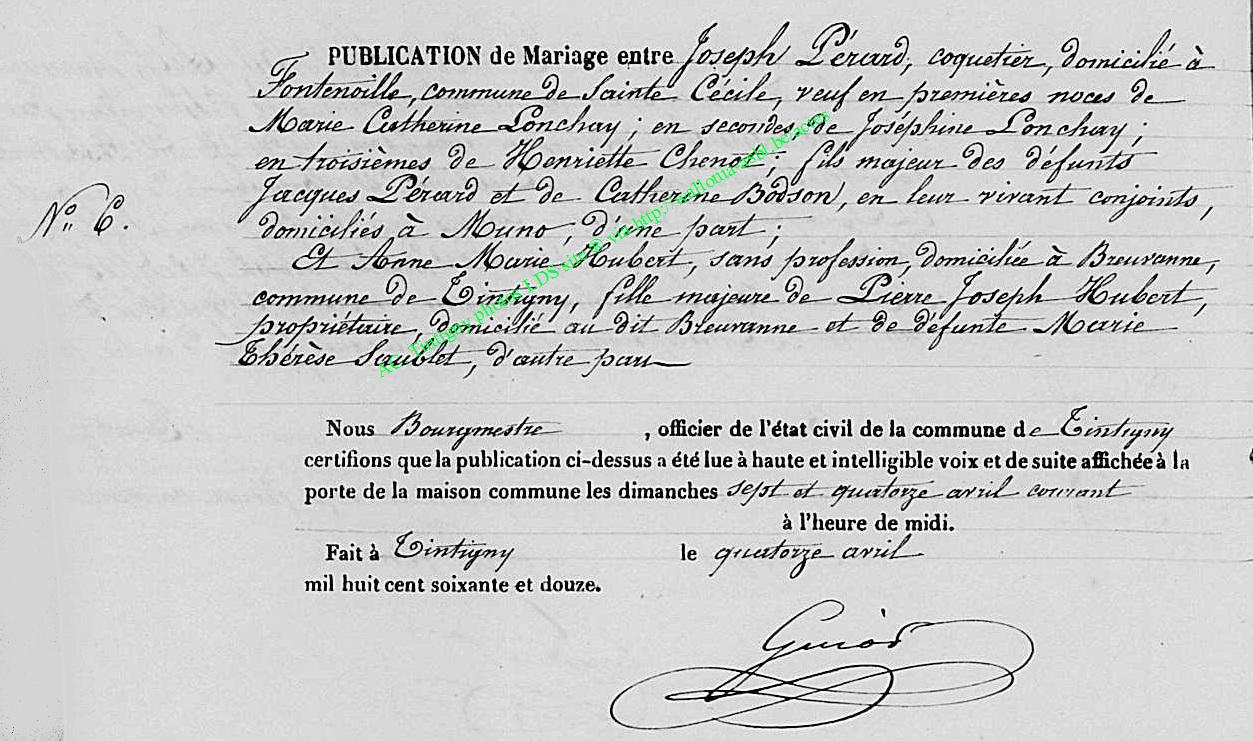 PUBLICATION de Mariage entre Joseph Pérard, coquetier, domicilié à
Fontenoille, commune de Sainte Cécile, veuf en premières noces de
Marie Catherine Lonchay ; en secondes, de Joséphine Lonchay ;
en troisièmes de Henriette Chenot ; fils majeur des défunts
Jacques Pérard et de Catherine Bodson, en leur vivant conjoints,
N° 6.
domiciliés à Muno, d'une part ;
Et Anne Marie Hubert, sans profession, domiciliée à Breuvanne,
commune de Tintigny, fille majeure de Pierre Joseph Hubert,
propriétaire, domicilié au dit Breuvanne et de défunte Marie
Thérèse Saublet, d'autre part
Nous Bourgmestre , officier de l'état civil de la commune de Tintigny
certifions que la publication ci-dessus a été lue à haute et intelligible voix et de suite affichée à la
porte de la maison commune les dimanches sept et quatorze avril courant
à l'heure de midi.
Fait à Tintigny le quatorze avril
mil huit cent soixante et douze.
Tintigny photos LDS site via http://wallonia-asbl.be/actes